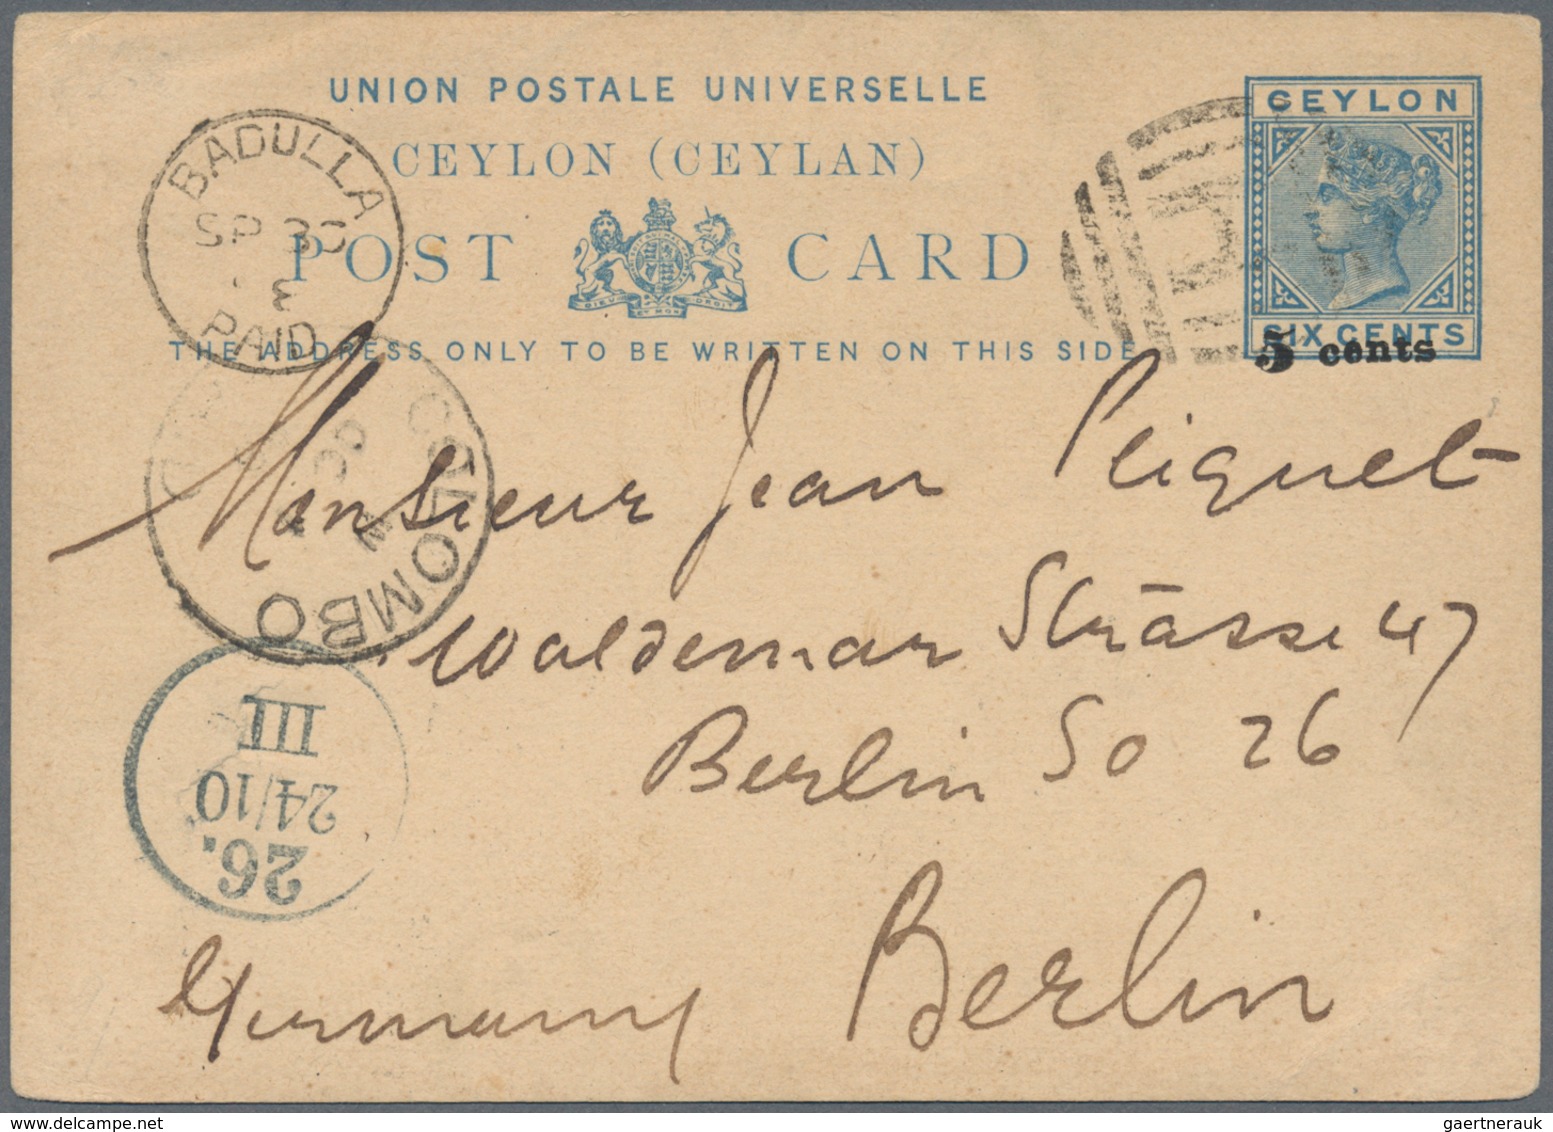 UNION POSTALE UNIVERSELLE
CEYLON (CEYLAN)
POST CARD
DIEU ET MON DROIT
THE ADDRESS ONLY TO BE WRITTEN ON THIS SIDE
CEYLON
SIX CENTS
5 cents
BADULLA
SP 30
PAID
COLOMBO
Monsieur Jean Peiguet
Waldemar Strasse 47
Berlin So 26
Berlin
Germany
III
24/10
26.
gaertnerauk @ delcampe.net